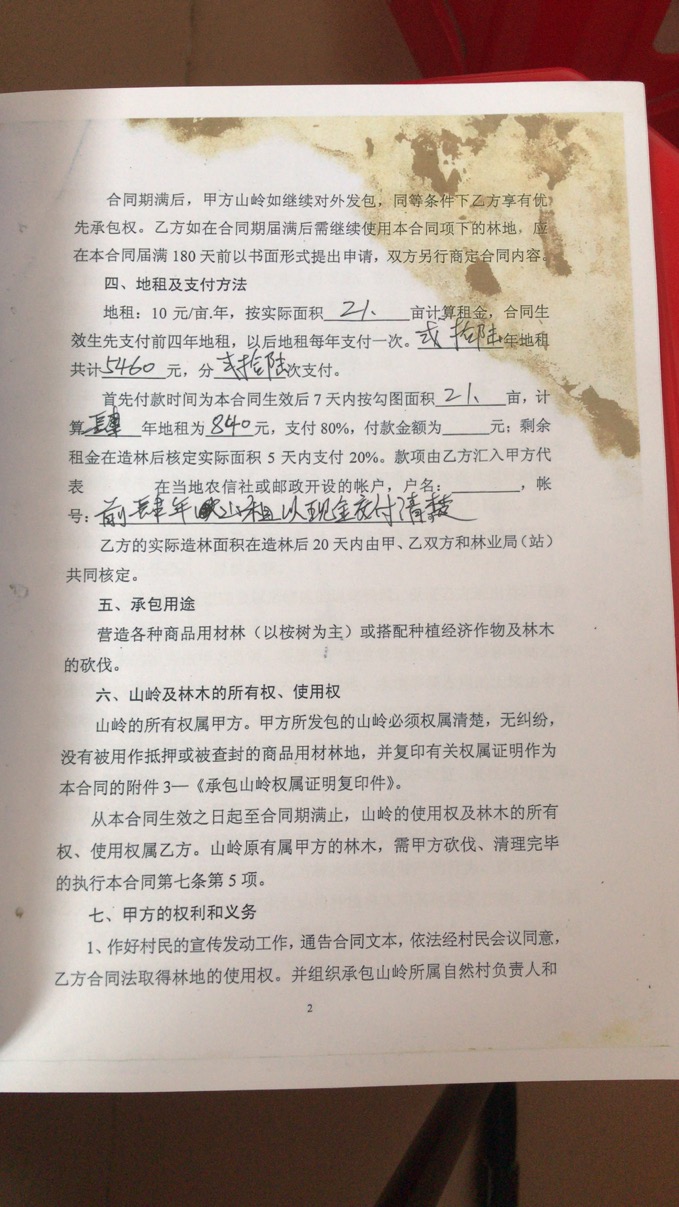 合同期满后，甲方山岭如继续对外发包，同等条件下乙方享有优
先承包权。乙方如在合同期届满后需继续使用本合同项下的林地，应
在本合同届满 180 天前以书面形式提出申请，双方另行商定合同内容。
四、地租及支付方法
地租：10 元/亩.年，按实际面积 21、 亩计算租金，合同生
效生先支付前四年地租，以后地租每年支付一次。贰拾陆年地租
共计5460元，分贰拾陆次支付。
首先付款时间为本合同生效后 7 天内按勾图面积 21、 亩，计
算肆 年地租为 840 元，支付 80%，付款金额为______元；剩余
租金在造林后核定实际面积 5 天内支付 20%。款项由乙方汇入甲方代
表 在当地农信社或邮政开设的帐户，户名：________，帐
号：前肆年 租以现金交付清楚
乙方的实际造林面积在造林后 20 天内由甲、乙双方和林业局（站）
共同核定。
五、承包用途
营造各种商品用材林（以桉树为主）或搭配种植经济作物及林木
的砍伐。
六、山岭及林木的所有权、使用权
山岭的所有权属甲方。甲方所发包的山岭必须权属清楚，无纠纷，
没有被用作抵押或被查封的商品用材林地，并复印有关权属证明作为
本合同的附件 3—《承包山岭权属证明复印件》。
从本合同生效之日起至合同期满止，山岭的使用权及林木的所有
权、使用权属乙方。山岭原有属甲方的林木，需甲方砍伐、清理完毕
的执行本合同第七条第 5 项。
七、甲方的权利和义务
1、作好村民的宣传发动工作，通告合同文本，依法经村民会议同意，
乙方合同法取得林地的使用权。并组织承包山岭所属自然村负责人和
2